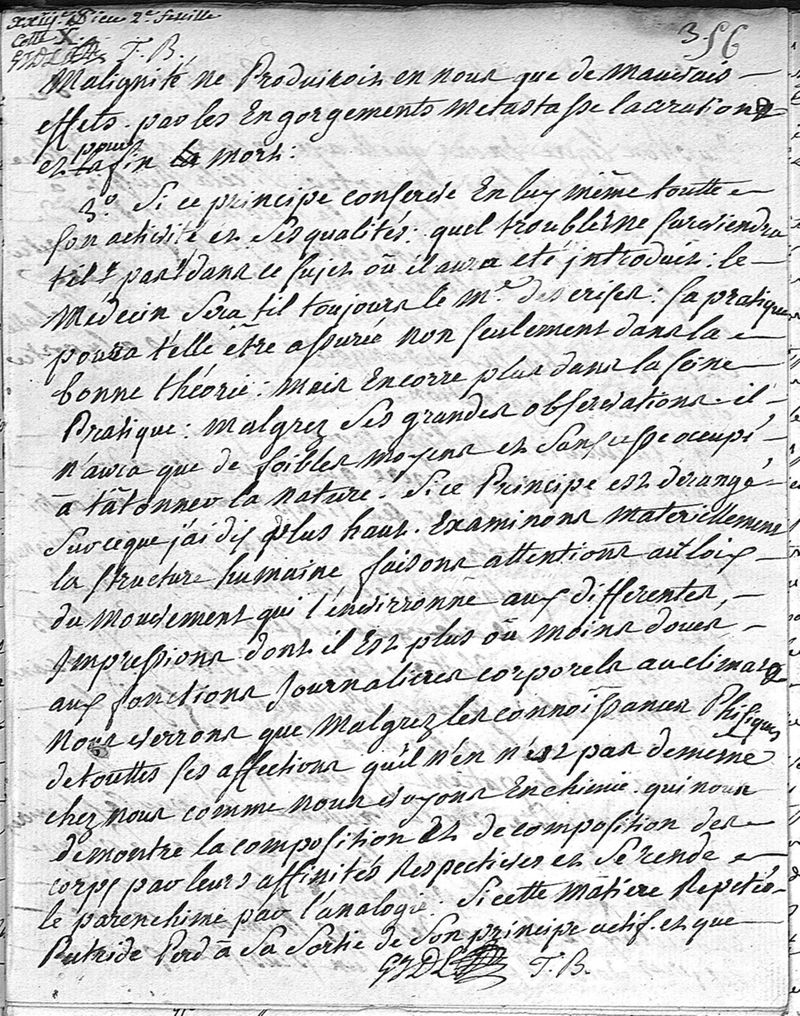 xxiij.e & Dieu 2.e feuille
Cotte X.
T. B.
356
Malignité ne Produiroit en nous que de mauvais
effets. par les Engorgements metastasse lacerations
et pour la fin la mort.
3.o Si ce principe conserve En luy même toutte
son activité et ses qualités: quel trouble ne surviendra
til pas dans ce sujet où il aura eté jntroduit: le
Médecin sera til toujours le m.e des crises: sa pratique
poura t'elle être assurée non seulement dans la
bonne théorie: mais Encorre plus dans la seine
Pratique: malgrez ses grandes observations. il
n'aura que de foibles moyens et sans cesse occupé
à tâtonner la nature! Si ce Principe est dérangé
sur ce que j'ai dis plus haut. Examinons materiellement
la structure humaine faisons attentions au loix
du mouvement qui l'environne aux differentes
Jmpressions dont il Est plus où moins doues
aux fonctions Journalieres corporels au climats
nous verrons que malgrez les connoissances Phisiques
de touttes ses affections qu'il n'en n'est pas de meme
chez nous comme nous voyons En chimie. qui nous
demontre la composition et de composition des
corps par leurs affinités Respectives et se rende
le parenchime par l'analogie. Si cette matiere Repetée
Putride Perd à sa sortie de son principe actif. et que
T. B.